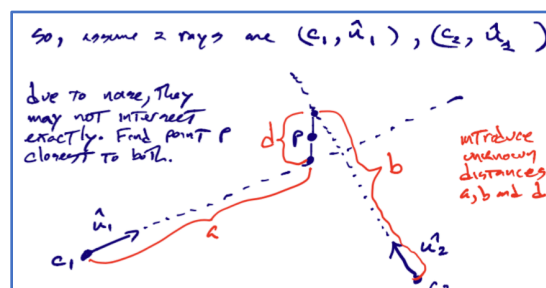 So, assume 2 rays are (c₁, û₁), (c₂, û₂)
due to noise, they
may not intersect
exactly. Find point P
closest to both.
d
P
b
introduce
unknown
distances
a, b and d
û₁
a
û₂
c₁